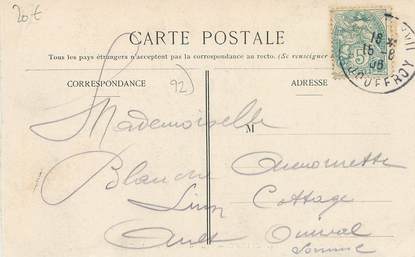 20 €
CARTE POSTALE
Tous les pays étrangers n'acceptent pas la correspondance au recto. (Se renseigner
CORRESPONDANCE
ADRESSE
92)
M
Mademoiselle
Blanche
Cottage
Ault Onival
Somme
5
18
16 8
06
JOUFFROY